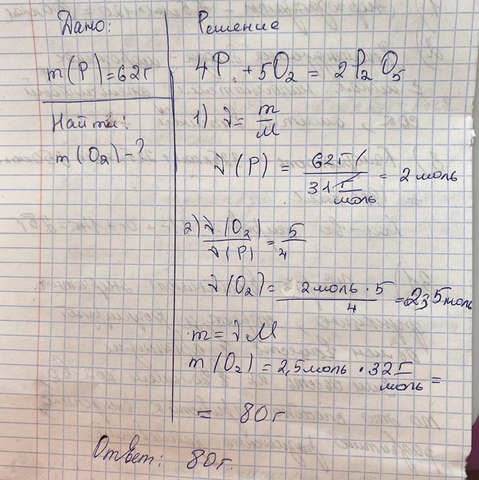 Дано:
m(P)=62г
Найти:
m(O₂)-?
Решение
4P + 5O₂ = 2P₂O₅
1) ν = m/M
ν(P) = 62г/31 г/моль = 2 моль
2) ν(O₂)/ν(P) = 5/4
ν(O₂) = 2моль · 5/4 = 2,5 моль
m = νM
m(O₂) = 2,5моль · 32 г/моль =
= 80г
Ответ: 80г.